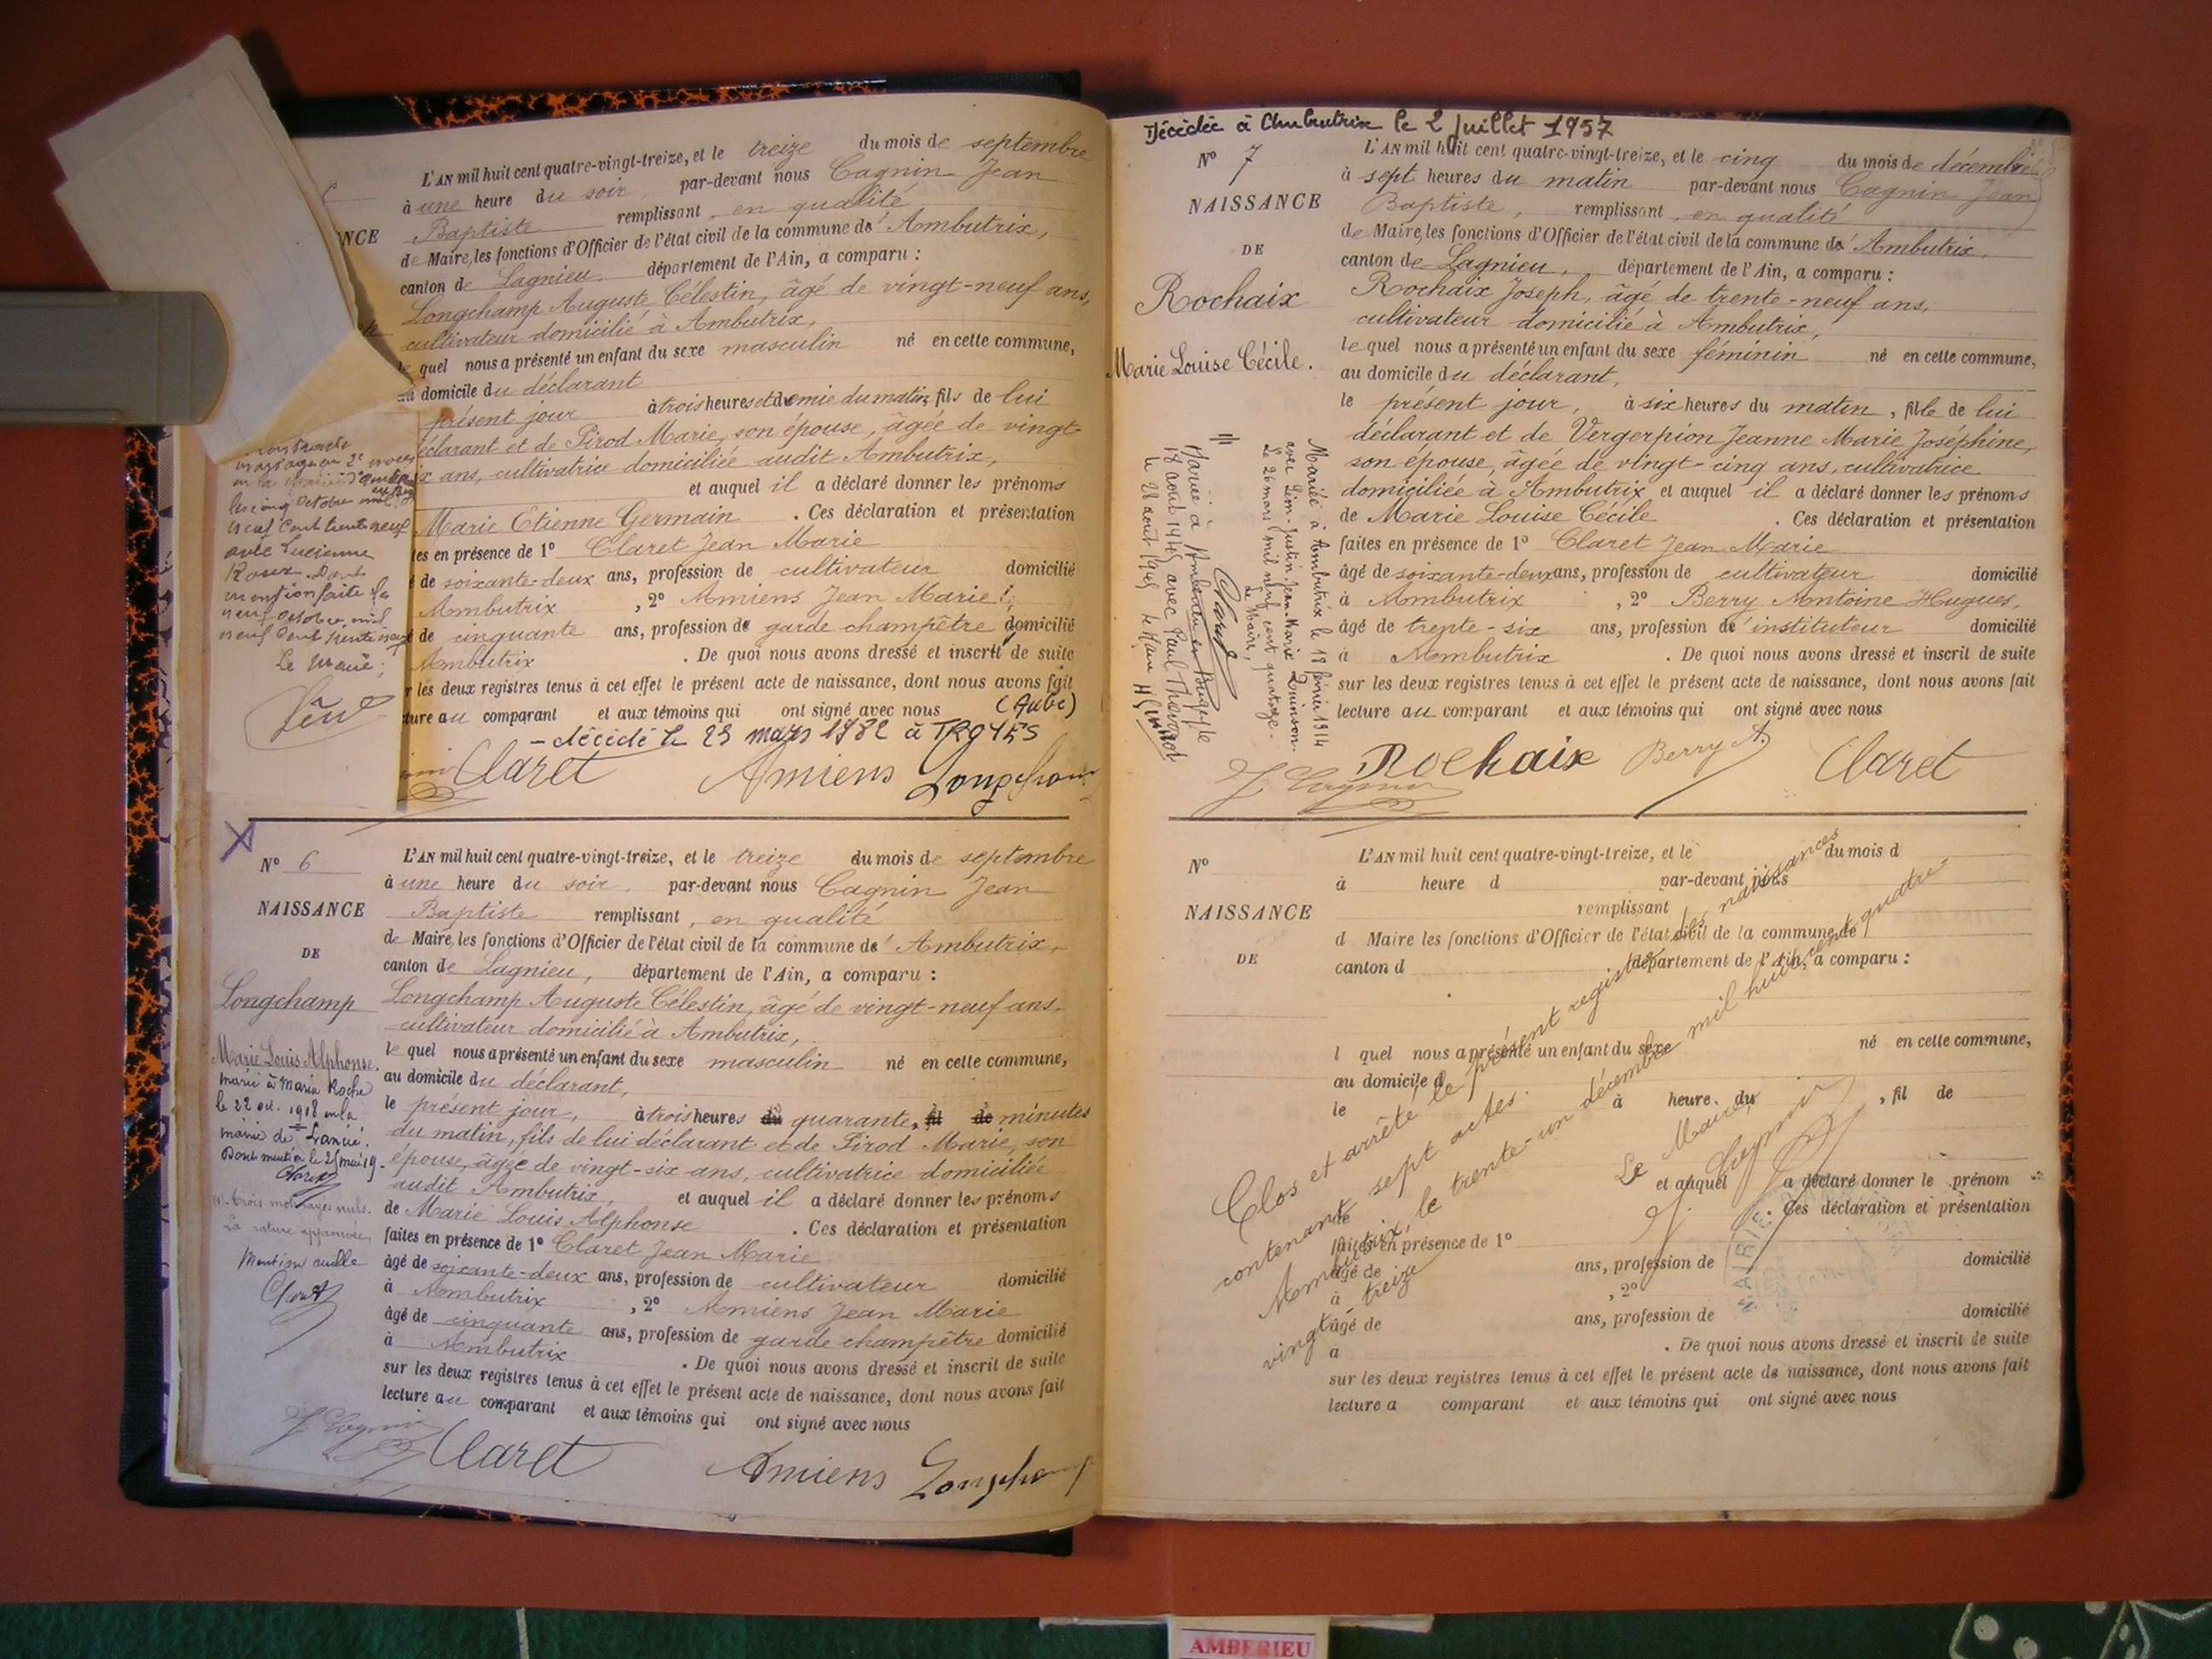 L'AN mil huit cent quatre-vingt-treize, et le treize du mois de septembre
à une heure du soir par-devant nous Cagnin Jean
NCE Baptiste remplissant, en qualité
de Maire, les fonctions d'Officier de l'état civil de la commune de Ambutrix,
canton de Lagnieu département de l'Ain, a comparu :
Longchamp Auguste Célestin, âgé de vingt-neuf ans,
cultivateur domicilié à Ambutrix,
le quel nous a présenté un enfant du sexe masculin né en cette commune,
au domicile du déclarant
présent jour à trois heures et demie du matin, fils de lui
déclarant et de Pirod Marie, son épouse, âgée de vingt-
ix ans, cultivatrice domiciliée audit Ambutrix,
et auquel il a déclaré donner les prénoms
Marie Etienne Germain . Ces déclaration et présentation
tes en présence de 1° Claret Jean Marie
é de soixante-deux ans, profession de cultivateur domicilié
Ambutrix , 2° Amiens Jean Marie
de cinquante ans, profession de garde champêtre domicilié
Ambutrix . De quoi nous avons dressé et inscrit de suite
r les deux registres tenus à cet effet le présent acte de naissance, dont nous avons fait
ture au comparant et aux témoins qui ont signé avec nous (Aube)
- décédé le 23 mars 1982 à TROYES
Claret Amiens Longchamp
mariage en 2e noces
les cinq Octobre mil
neuf cent trente neuf
avec Lucienne
Roux. Dont
mention faite le
neuf octobre mil
neuf cent trente neuf
Le Maire;
N° 6
NAISSANCE
DE
Longchamp
Marie Louis Alphonse.
marié à Maria Roche
le 22 oct. 1918 en la
mairie de Lancié.
Dont mention le 25 mai 19
Claret
Trois mots rayés nuls.
La rature approuvée
Mention nulle
Claret
L'AN mil huit cent quatre-vingt-treize, et le treize du mois de septembre
à une heure du soir par-devant nous Cagnin Jean
Baptiste remplissant, en qualité
de Maire, les fonctions d'Officier de l'état civil de la commune de Ambutrix,
canton de Lagnieu, département de l'Ain, a comparu :
Longchamp Auguste Célestin, âgé de vingt-neuf ans,
cultivateur domicilié à Ambutrix,
le quel nous a présenté un enfant du sexe masculin né en cette commune,
au domicile du déclarant,
le présent jour, à trois heures du quarante, fil de minutes
du matin, fils de lui déclarant et de Pirod Marie, son
épouse, âgée de vingt-six ans, cultivatrice domiciliée
audit Ambutrix, et auquel il a déclaré donner les prénoms
de Marie Louis Alphonse . Ces déclaration et présentation
faites en présence de 1° Claret Jean Marie
âgé de soixante-deux ans, profession de cultivateur domicilié
à Ambutrix , 2° Amiens Jean Marie
âgé de cinquante ans, profession de garde champêtre domicilié
à Ambutrix . De quoi nous avons dressé et inscrit de suite
sur les deux registres tenus à cet effet le présent acte de naissance, dont nous avons fait
lecture au comparant et aux témoins qui ont signé avec nous
J Cagnin Claret Amiens Longchamp
Décédée à Ambutrix le 2 Juillet 1957
N° 7
NAISSANCE
DE
Rochaix
Marie Louise Cécile.
Mariée à Ambutrix le 18 février 1914
avec Léon-Justin-Jean-Marie Quinson.
Le 26 mars mil neuf cent quatorze.
Le Maire,
Claret
Mariée à Ambérieu en Bugey le
18 août 1945 avec Paul Thévenet
le 28 août 1945 le Maire
L'AN mil huit cent quatre-vingt-treize, et le cinq du mois de décembre
à sept heures du matin par-devant nous Cagnin Jean
Baptiste, remplissant, en qualité
de Maire, les fonctions d'Officier de l'état civil de la commune de Ambutrix,
canton de Lagnieu, département de l'Ain, a comparu :
Rochaix Joseph, âgé de trente-neuf ans,
cultivateur domicilié à Ambutrix,
le quel nous a présenté un enfant du sexe féminin né en cette commune,
au domicile du déclarant,
le présent jour, à six heures du matin, fille de lui
déclarant et de Vergerpion Jeanne Marie Joséphine,
son épouse, âgée de vingt-cinq ans, cultivatrice
domiciliée à Ambutrix et auquel il a déclaré donner les prénoms
de Marie Louise Cécile . Ces déclaration et présentation
faites en présence de 1° Claret Jean Marie
âgé de soixante-deux ans, profession de cultivateur domicilié
à Ambutrix , 2° Berry Antoine Hugues,
âgé de trente-six ans, profession de instituteur domicilié
à Ambutrix . De quoi nous avons dressé et inscrit de suite
sur les deux registres tenus à cet effet le présent acte de naissance, dont nous avons fait
lecture au comparant et aux témoins qui ont signé avec nous
J Cagnin Rochaix Berry A. Claret
N°
NAISSANCE
DE
L'AN mil huit cent quatre-vingt-treize, et le du mois d
à heure d par-devant nous
remplissant
d Maire les fonctions d'Officier de l'état civil de la commune de
canton d département de l'Ain, a comparu :
l quel nous a présenté un enfant du sexe né en cette commune,
au domicile d
le à heure du , fil de
et auquel a déclaré donner le prénom
de . Ces déclaration et présentation
faites en présence de 1°
âgé de ans, profession de domicilié
à , 2°
âgé de ans, profession de domicilié
à . De quoi nous avons dressé et inscrit de suite
sur les deux registres tenus à cet effet le présent acte de naissance, dont nous avons fait
lecture a comparant et aux témoins qui ont signé avec nous
Clos et arrêté le présent registre des naissances
contenant sept actes.
Ambutrix, le trente-un décembre mil huit cent quatre-
vingt treize
Le Maire,
J. Cagnin
MAIRIE
AMBERIEU